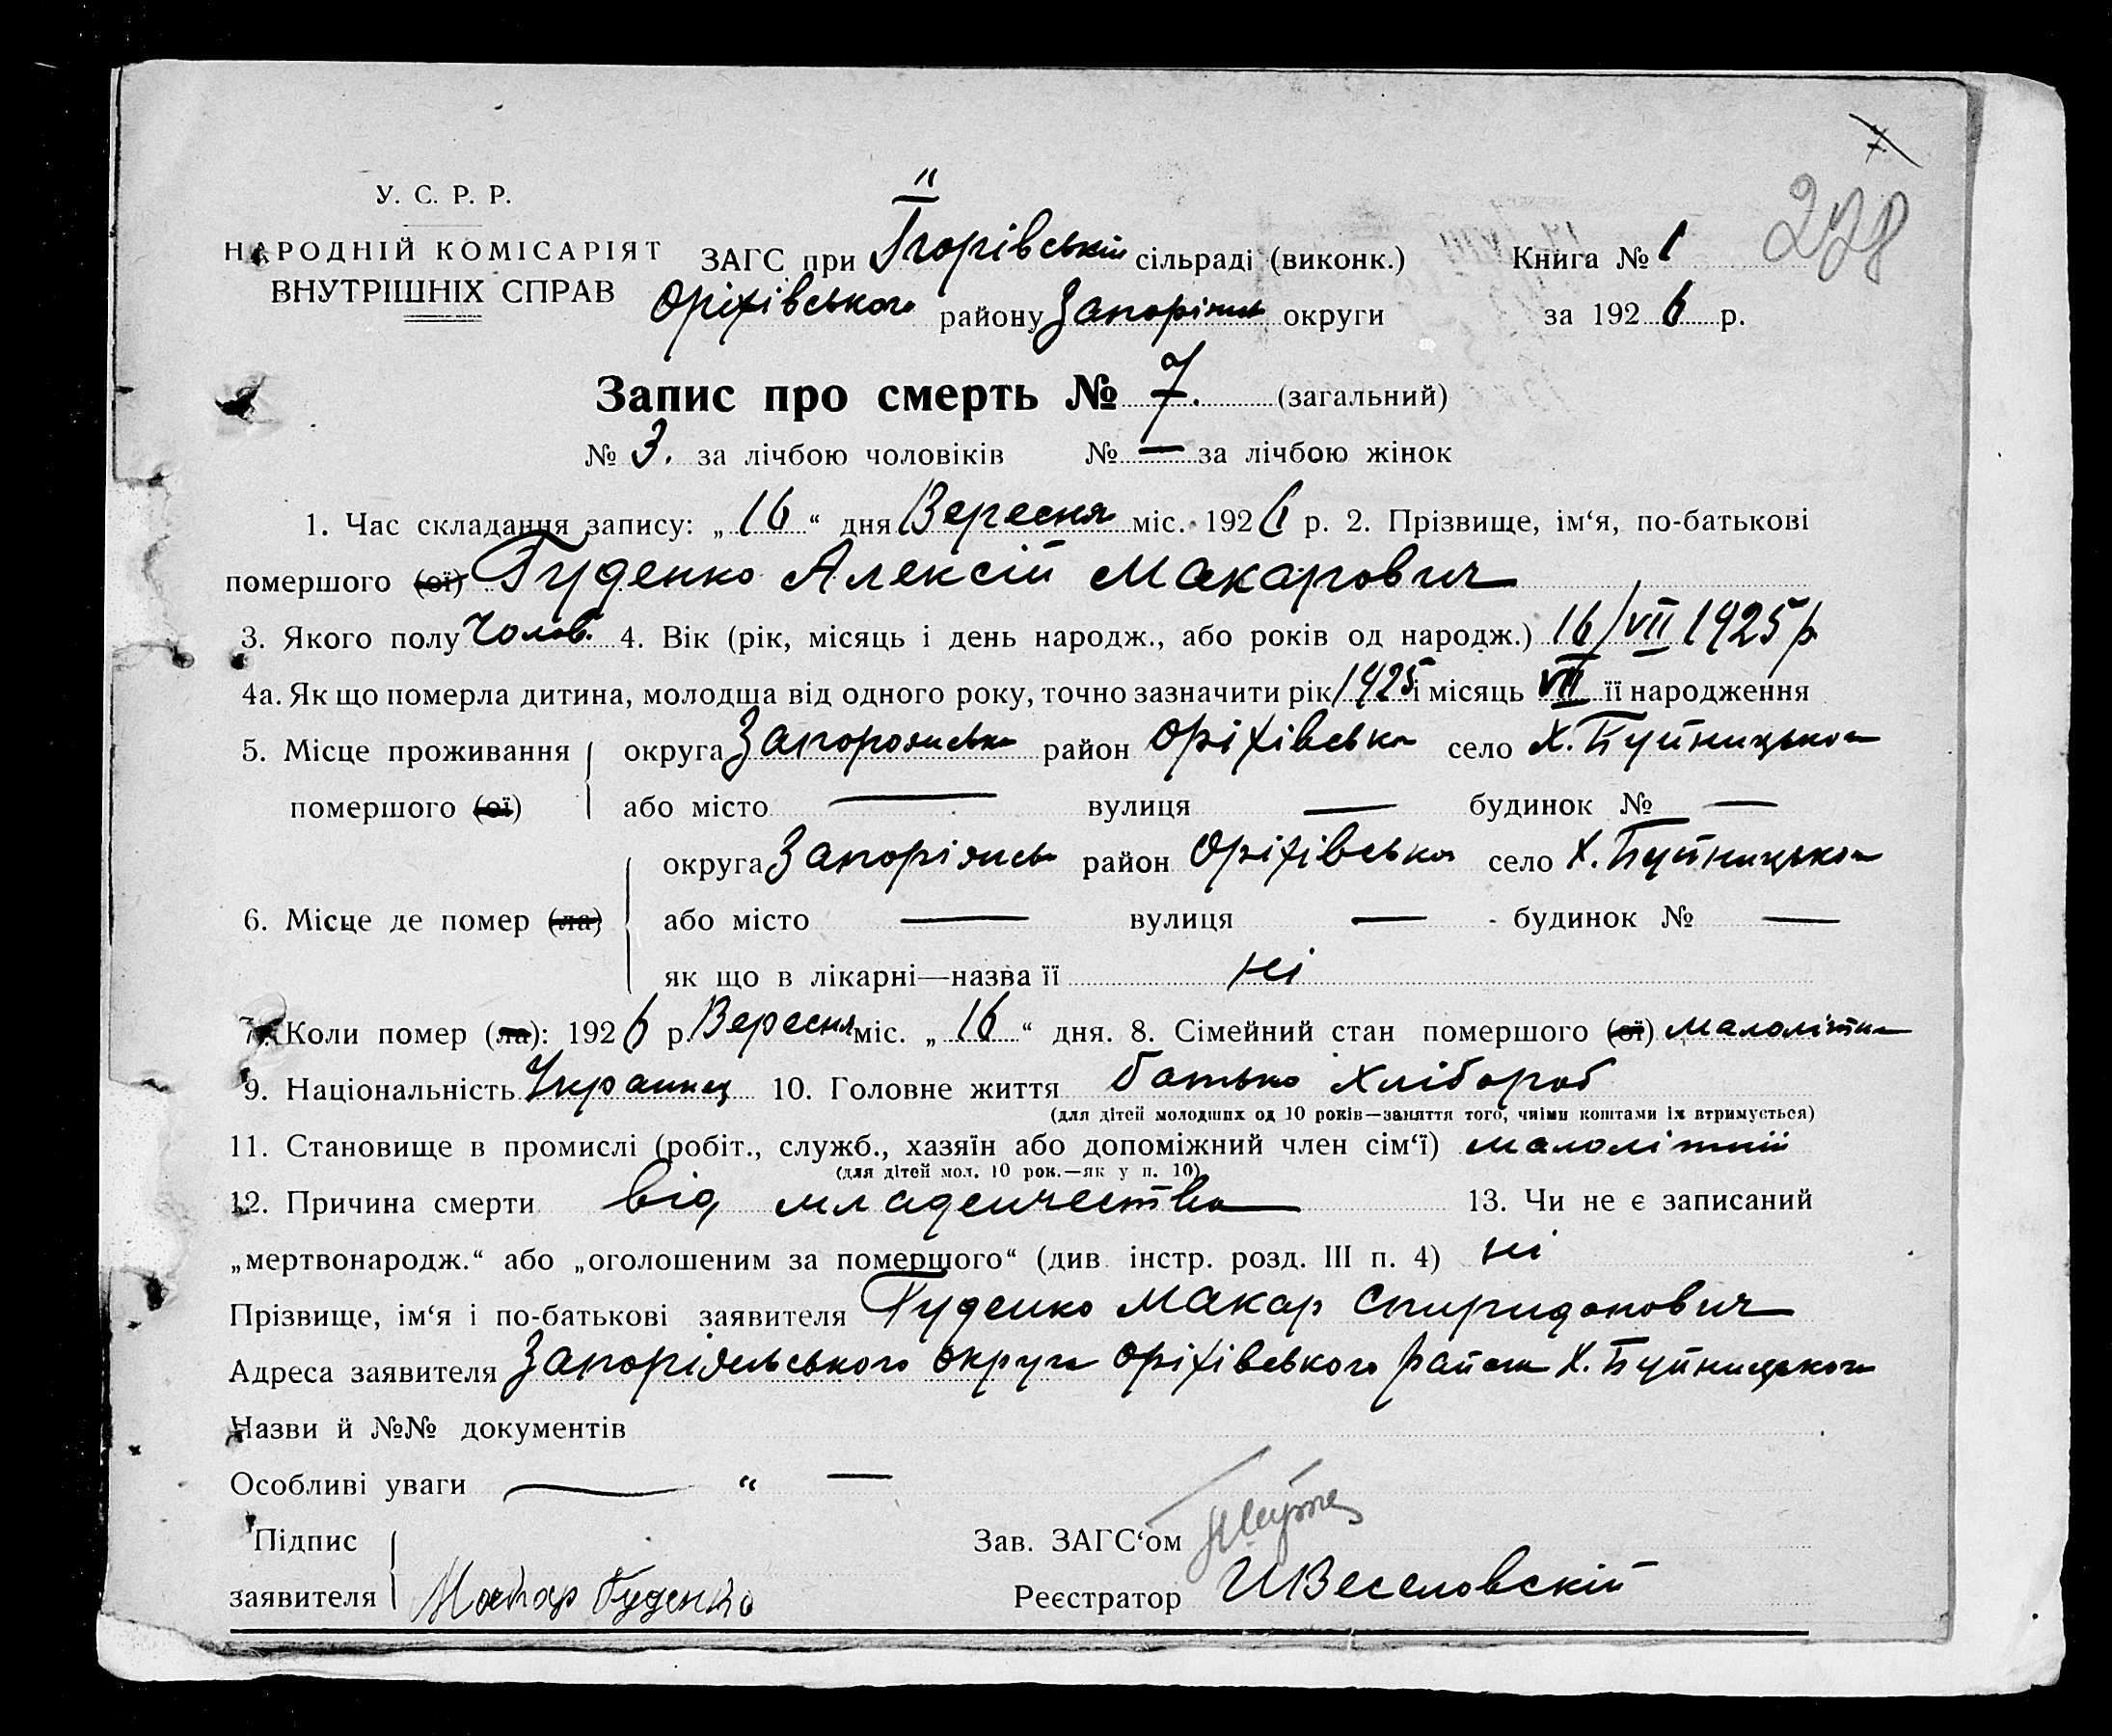 7
228
У. С. Р. Р.
НАРОДНІЙ КОМІСАРІЯТ
ВНУТРІШНІХ СПРАВ
ЗАГС при II Ігорівській сільраді (виконк.) Книга № 1
Оріхівського району Запоріжськ округи за 1926 р.
Запис про смерть № 7. (загальний)
№ 3. за лічбою чоловіків № — за лічбою жінок
1. Час складання запису: „16“ дня Вересня міс. 1926 р. 2. Прізвище, ім‘я, по-батькові
помершого (ої) Гуденко Алексій Макарович
3. Якого полу Чолов. 4. Вік (рік, місяць і день народж., або років од народж.) 16/VII 1925 р
4а. Як що померла дитина, молодша від одного року, точно зазначити рік 1925 і місяць VII її народження
5. Місце проживання округа Запорожська район Оріхівська село Х. Буйницького
помершого (ої) або місто — вулиця — будинок № —
округа Запоріжськ район Оріхівська село Х. Буйницького
6. Місце де помер (ла) або місто — вулиця — будинок № —
як що в лікарні—назва її ні
7. Коли помер (ла): 1926 р. Вересня міс. „16“ дня. 8. Сімейний стан помершого (ої) малолітни
9. Національність Украинец 10. Головне життя батько хлібороб
(для дітей молодших од 10 років—заняття того, чиїми коштами їх втримується)
11. Становище в промислі (робіт., служб., хазяїн або допоміжний член сім‘ї) малолітній
(для дітей мол. 10 рок.—як у п. 10)
12. Причина смерти від младенчества 13. Чи не є записаний
„мертвонародж.“ або „оголошеним за помершого“ (див. інстр. розд. III п. 4) ні
Прізвище, ім‘я і по-батькові заявителя Гуденко Макар Спиридонович
Адреса заявителя Запоріжського округи Оріхівського району Х. Буйницького
Назви й №№ документів
Особливі уваги — “ —
Підпис
заявителя Макар Гуденко
Зав. ЗАГС‘ом
Реєстратор И Веселовскій